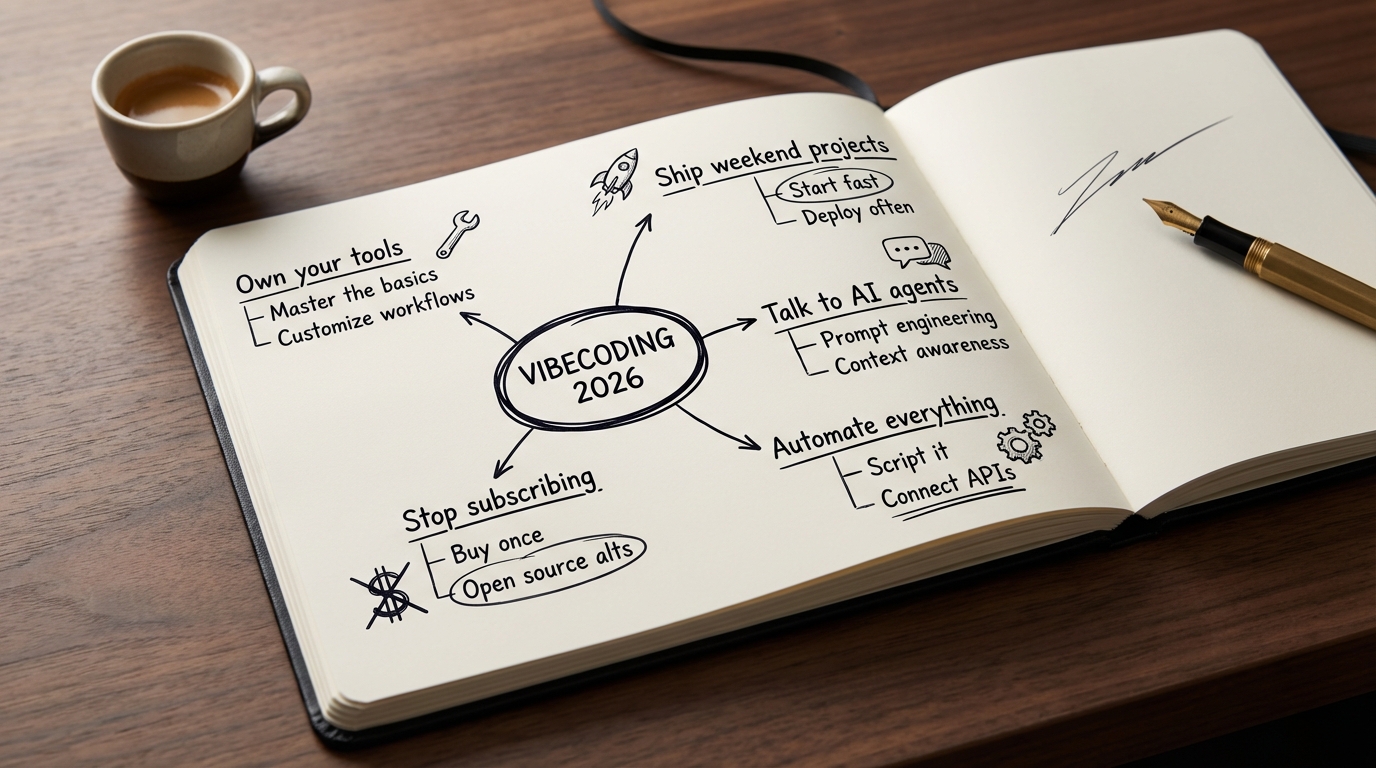 VIBECODING
2026
Own your tools
Master the basics
Customize workflows
Ship weekend projects
Start fast
Deploy often
Talk to AI agents
Prompt engineering
Context awareness
Automate everything.
Script it
Connect APIs
Stop subscribing.
Buy once
Open source alts